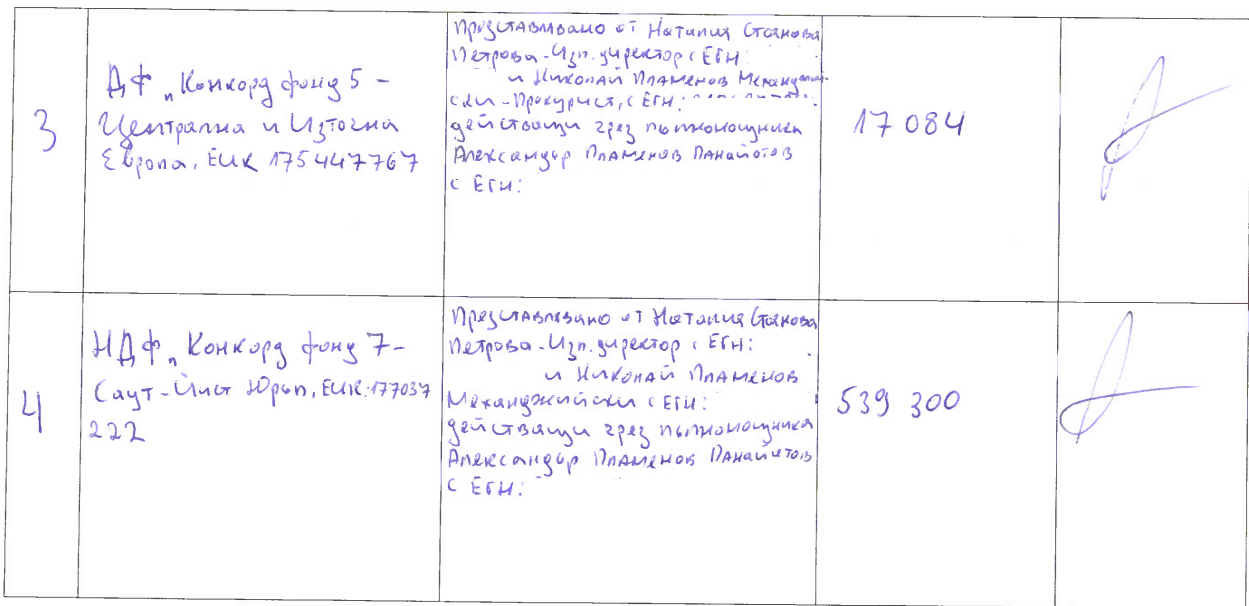 3
ДФ „Конкорд фонд 5 -
Централна и Източна
Европа, ЕИК 175447767
Представлявано от Наталия Стоянова
Петрова - Изп. директор с ЕГН:
и Николай Пламенов Механджий-
ски - Прокурист, с ЕГН:
действащи чрез пълномощника
Александър Пламенов Панайотов
с ЕГН:
17 084
4
НДФ „Конкорд фонд 7 -
Саут-Ийст Юръп, ЕИК: 177037
222
Представлявано от Наталия Стоянова
Петрова - Изп. директор с ЕГН:
и Николай Пламенов
Механджийски с ЕГН:
действащи чрез пълномощника
Александър Пламенов Панайотов
с ЕГН:
539 300